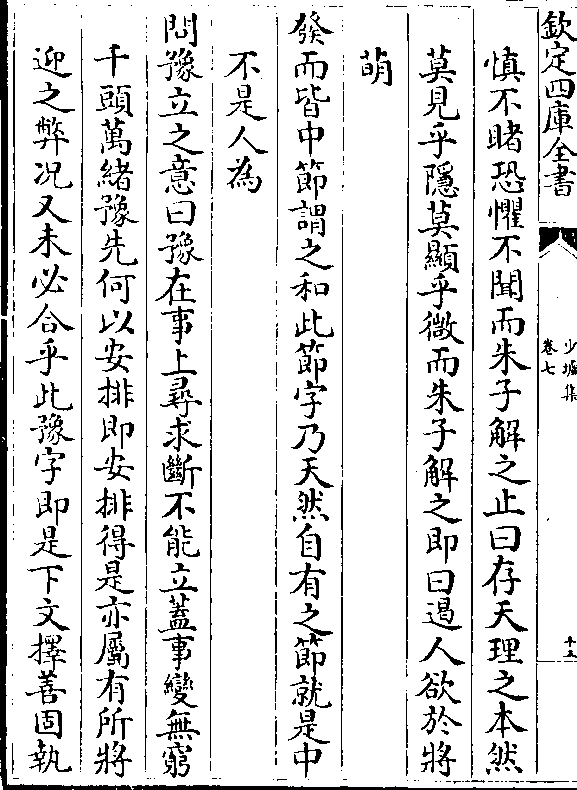 欽定四庫全書
少墟集
卷七
慎不睹恐懼不聞而朱子解之止曰存天理之本然
莫見乎隱莫顯乎微而朱子解之即曰遏人欲於將
萌
發而皆中節謂之和此節字乃天然自有之節就是中
不是人為
問豫立之意曰豫在事上尋求斷不能立蓋事變無窮
千頭萬緒豫先何以安排即安排得是亦屬有所將
迎之弊况又未必合乎此豫字即是下文擇善固執